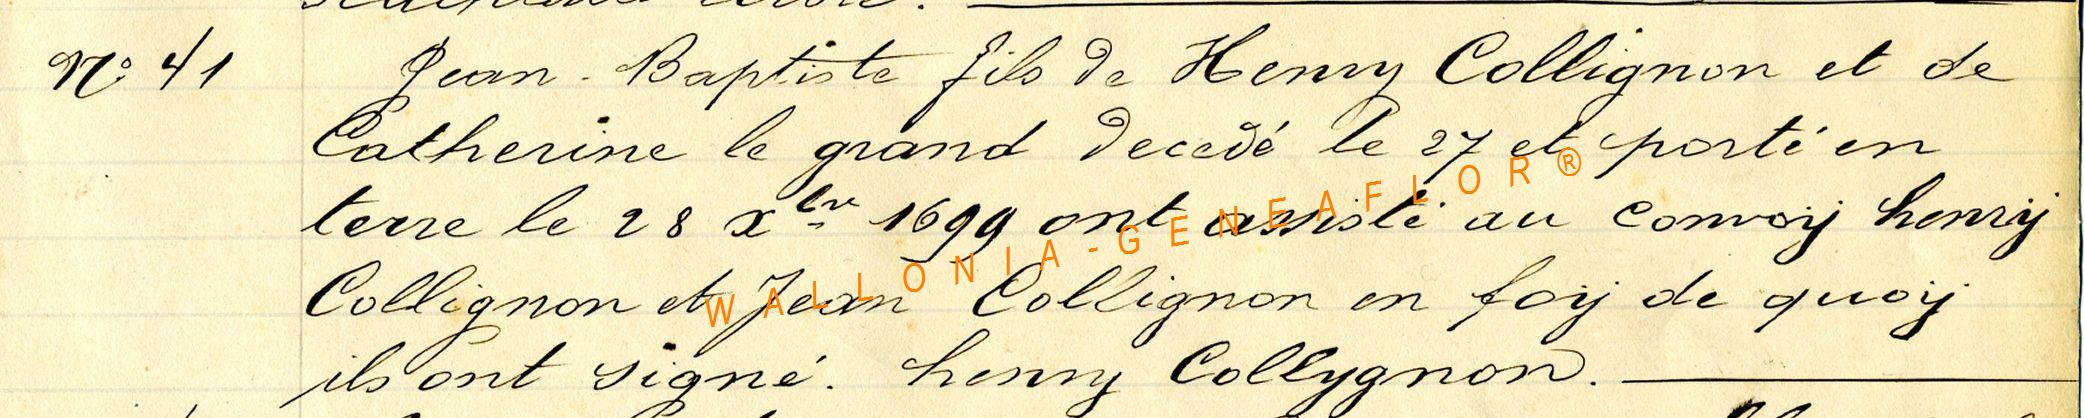 N° 41 Jean-Baptiste fils de Henry Collignon et de
Catherine le grand decedé le 27 et porté en
terre le 28 xbre 1699 ont assisté au convoÿ henrÿ
Collignon et Jean Collignon en foÿ de quoÿ
ils ont signé. henry Collygnon.
WALLONIA-GENEAFLOR®